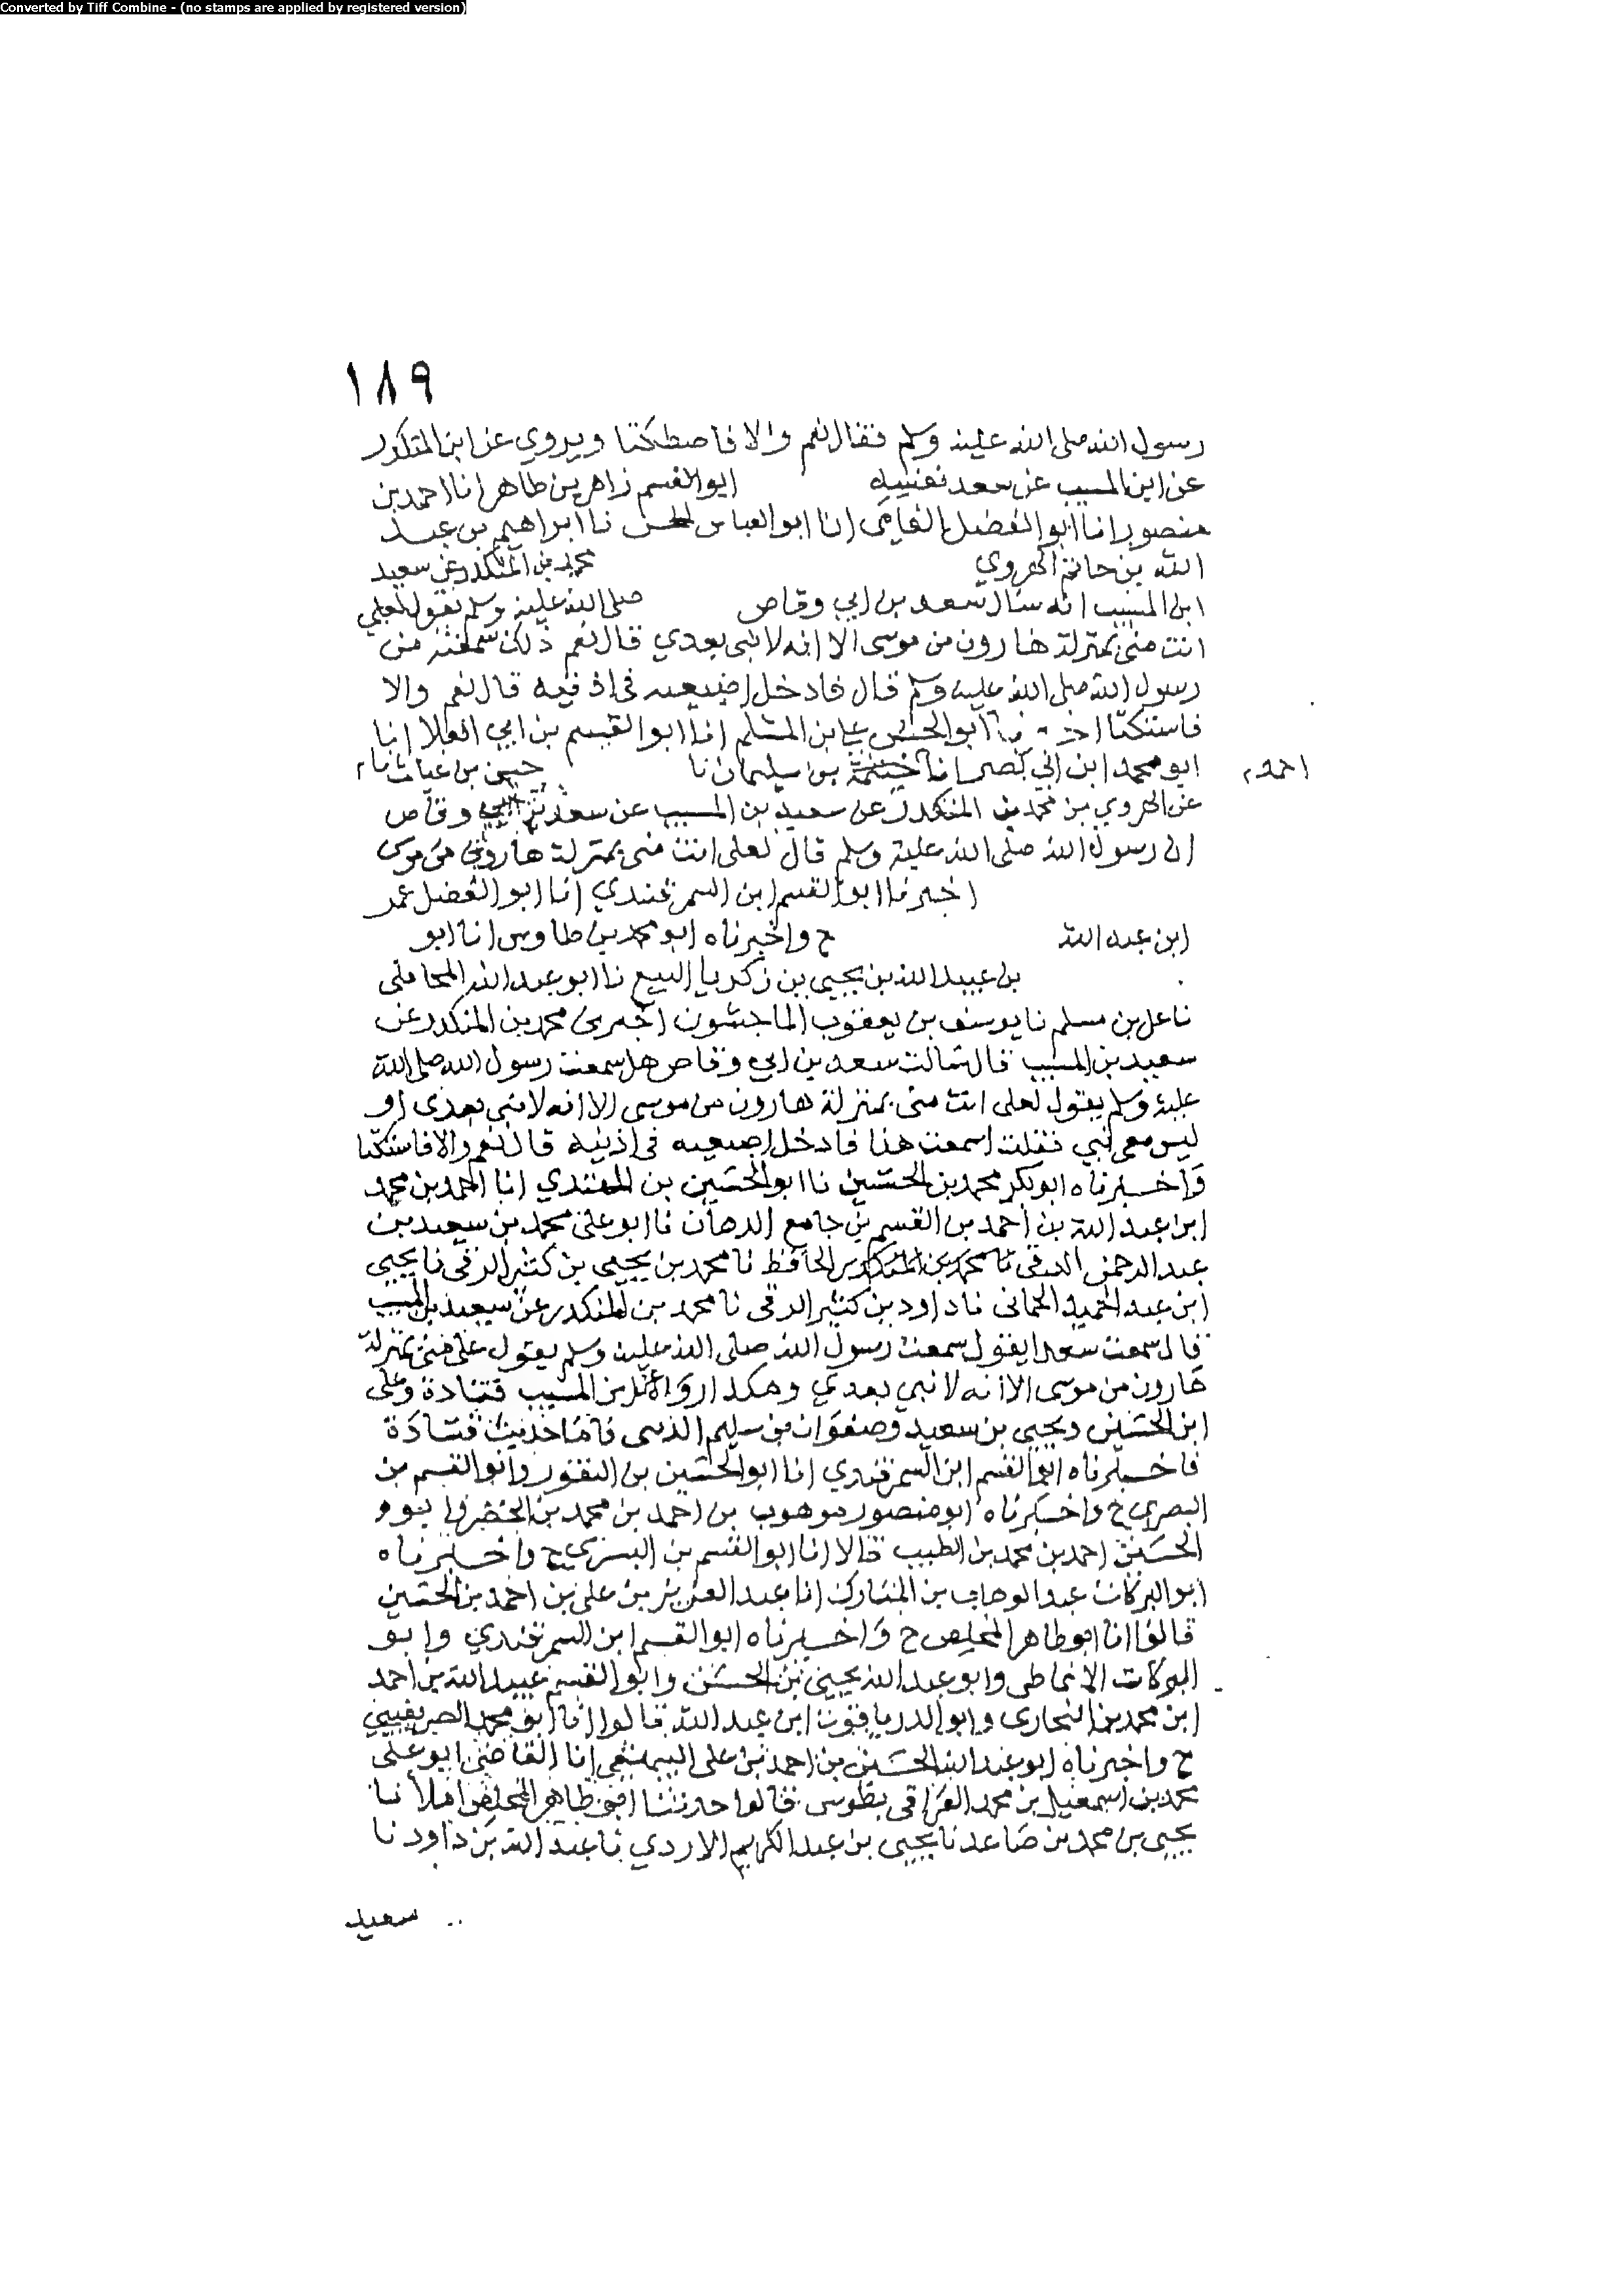 Converted by Tiff Combine - (no stamps are applied by registered version)
١٨٩
رسول الله صلى الله عليه وسلم فقال نعم والا فاصطكتا ويروي عن ابن المنكدر
عن ابن المسيب عن سعد نفسه ابو القسم زاهر بن طاهر انا احمد بن
منصور انا ابو الفضل الفامي انا ابو العباس نا ابراهيم بن عبد
الله بن حاتم الهروي محمد بن المنكدر عن سعيد
ابن المسيب انه سال سعد بن ابي وقاص صلى الله عليه وسلم يقول لعلي
انت مني بمنزلة هارون من موسى الا انه لا نبي بعدي قال نعم ذلك سمعته من
رسول الله صلى الله عليه وسلم قال فادخل اصبعيه في اذنيه قال نعم والا
فاستكتا ابو الحسن علي بن المسلم انا ابو القسم بن ابي العلا انا
ابو محمد ابن ابي نصر انا خيثمة بن سليمان نا نا
احمد
عن الهروي بن محمد بن المنكدر عن سعيد بن المسيب عن سعد بن ابي وقاص
ان رسول الله صلى الله عليه وسلم قال لعلى انت منى بمنزلة هارون من موسى
اخبرنا ابو القسم ابن السمرقندي انا ابو الفضل عمر
ابن عبد الله ح واخبرناه ابو محمد بن طاوس انا ابو
بن عبيد الله بن يحيى بن زكريا البيع نا ابو عبد الله المحاملى
نا على بن مسلم نا يوسف بن يعقوب الماجشون اخبرنى محمد بن المنكدر عن
سعيد بن المسيب قال سالت سعد بن ابي وقاص هل سمعت رسول الله صلى الله
عليه وسلم يقول لعلى انت منى بمنزلة هارون من موسى الا انه لا نبى بعدى او
ليس معي نبي فقلت اسمعت هذا فادخل اصبعيه في اذنيه قال نعم والا فاستكتا
واخبرناه ابو بكر محمد بن الحسين نا ابو الحسين بن المهتدي انا احمد بن محمد
ابن عبد الله بن احمد بن القسم بن جامع الدهان نا ابو على محمد بن سعيد بن
عبد الرحمن الرقى نا محمد بن الحافظ نا محمد بن يحيى بن كثير الرقى نا يحيى
ابن عبد الحميد الحمانى نا داود بن كثير الرقى نا محمد بن المنكدر عن سعيد بن المسيب
قال سمعت سعدا يقول سمعت رسول الله صلى الله عليه وسلم يقول على منى بمنزلة
هارون من موسى الا انه لا نبي بعدي وهكذا رواه عن ابن المسيب قتادة وعلى
ابن الحسين ويحيى بن سعيد وصفوان بن سليم فاما حديث قتادة
فاخبرناه ابو القسم ابن السمرقندي انا ابو الحسين بن النقور وابو القسم بن
البصري ح واخبرناه ابو منصور موهوب بن احمد بن محمد بن الخضر
الحسين احمد بن محمد بن الطيب قالا انا ابو القسم بن البسري ح واخبرناه
ابو البركات عبد الوهاب بن المبارك انا عبد العزيز بن على بن احمد بن الحسين
قالوا انا ابو طاهر المخلص ح واخبرناه ابو القسم ابن السمرقندي وابو
البركات الانماطى وابو عبد الله يحيى بن الحسن وابو القسم عبيد الله بن احمد
ابن محمد بن البخارى وابو الدر ياقوت ابن عبد الله قالوا انا ابو محمد الصريفيني
ح واخبرناه ابو عبد الله الحسين بن احمد بن على البيهقى انا القاضى ابو على
محمد بن اسمعيل بن محمد العراقى بطوس قالوا حدثنا ابو طاهر المخلص املا نا
يحيى بن محمد بن صاعد نا يحيى بن عبد الكريم الازدي نا عبد الله بن داود نا
سعيد